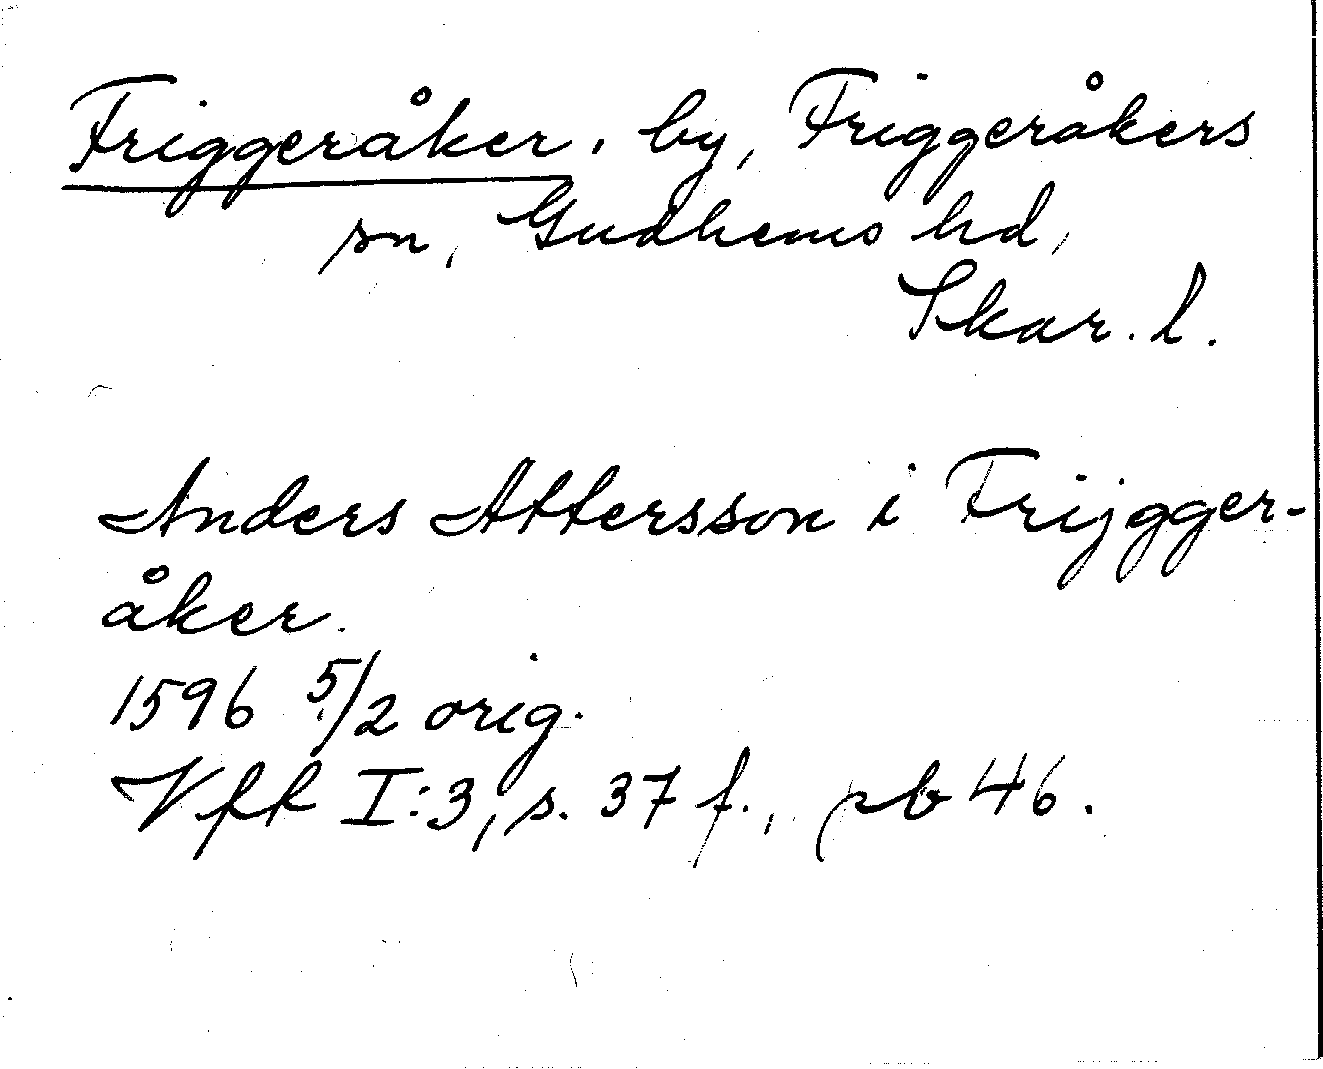 Friggeråker, by, Friggeråkers
sn, Gudhems hd,
Skar. l.
Anders Attersson i Frijgger-
åker.
1596 5/2 orig.
Vfk I:3, s. 37 f., pb 46.